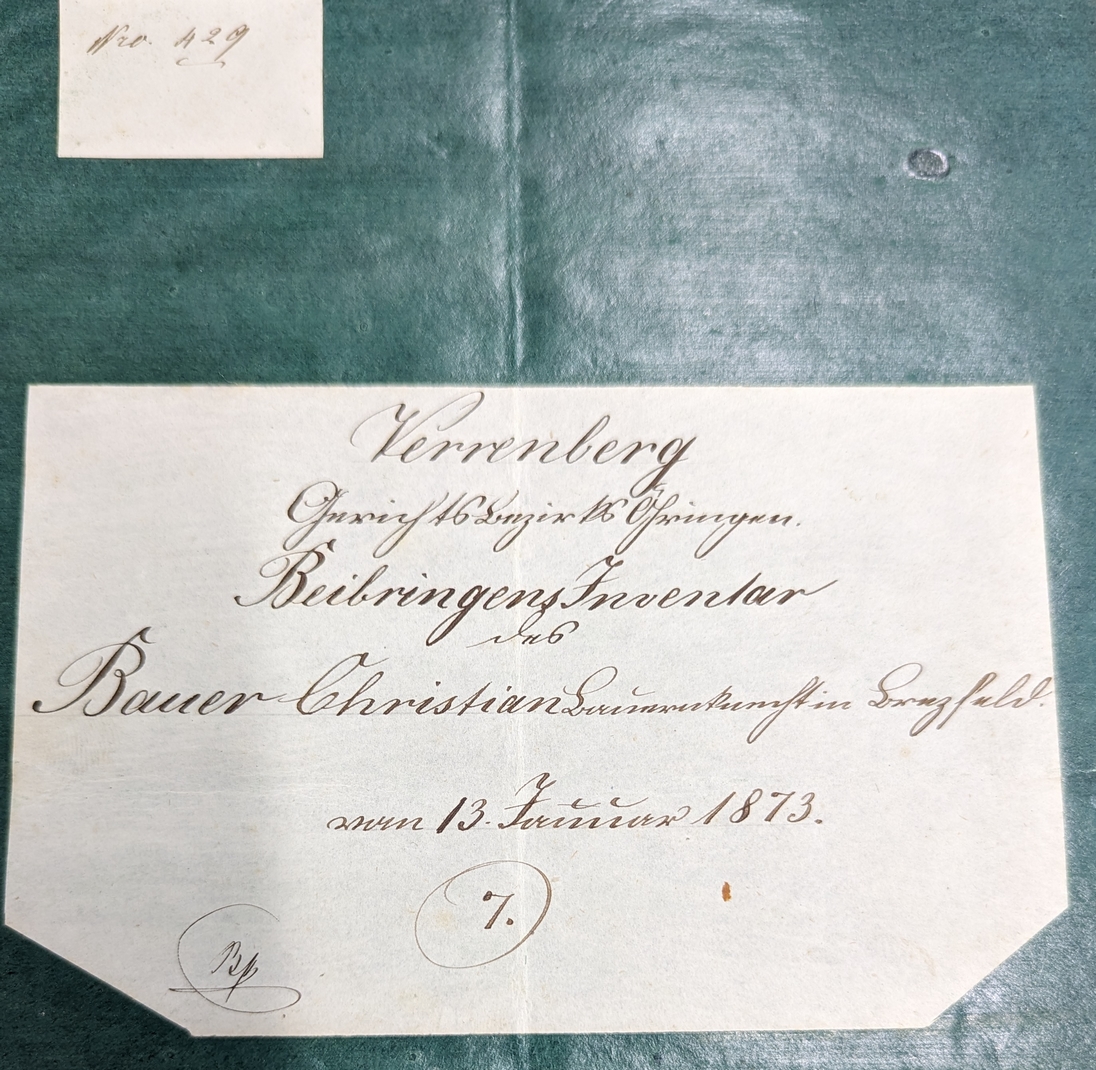 Nro. 429
Verrenberg
GerichtsBezirks Öhringen.
Beibringens Inventar
des
Bauer Christian Bauernknecht in Brezfeld.
vom 13. Januar 1873.
7.